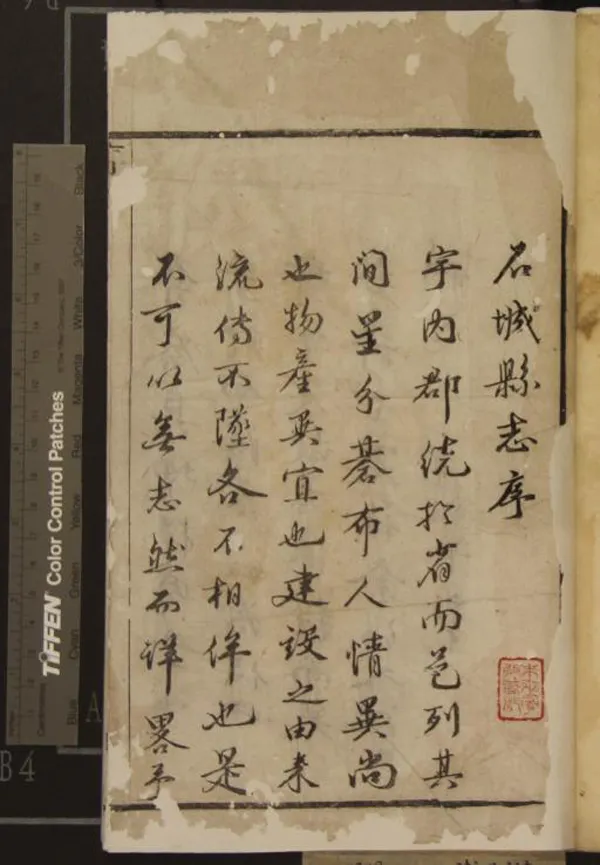 石城縣志序
宇內郡統於省而邑列其
間星分碁布人情異尚
也物產異宜也建設之由来
流傳不墜各不相侔也是
不可以無志然而詳畧
TIFFEN Color Control Patches
Blue Cyan Green Yellow Red Magenta White 3/Color Black
A
B4